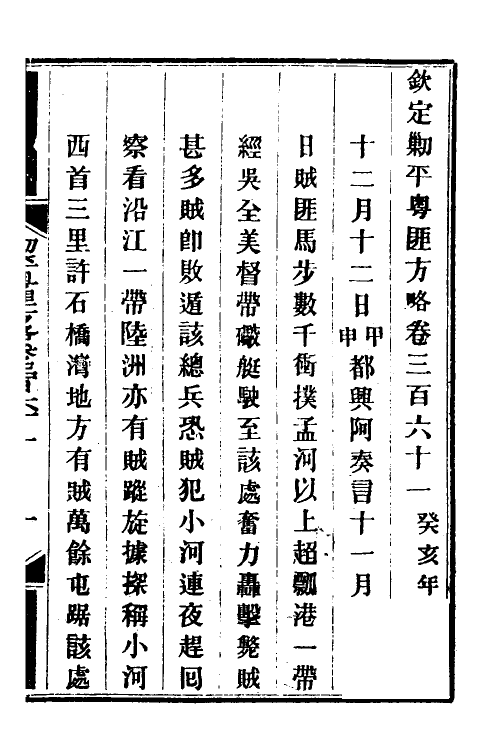 欽定勦平粵匪方略卷三百六十一 癸亥年
十二月十二日甲申都興阿奏言十一月
日賊匪馬步數千衝撲孟河以上超瓢港一帶
經吳全美督帶礮艇駛至該處奮力轟擊斃賊
甚多賊卽敗遁該總兵恐賊犯小河連夜趕回
察看沿江一帶陸洲亦有賊蹤旋據探稱小河
西首三里許石橋灣地方有賊萬餘屯踞該處